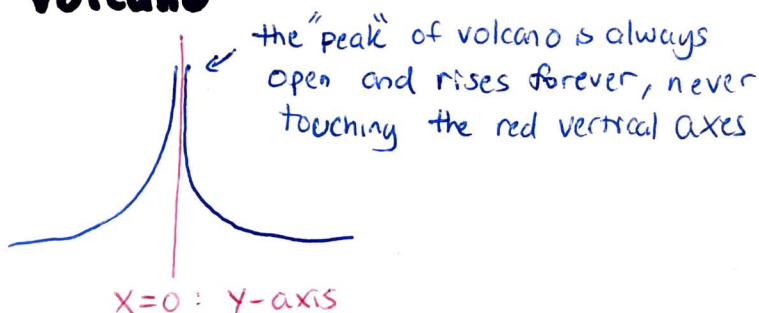 volcano
the "peak" of volcano is always
open and rises forever, never
touching the red vertical axes
X=0 : Y-axis